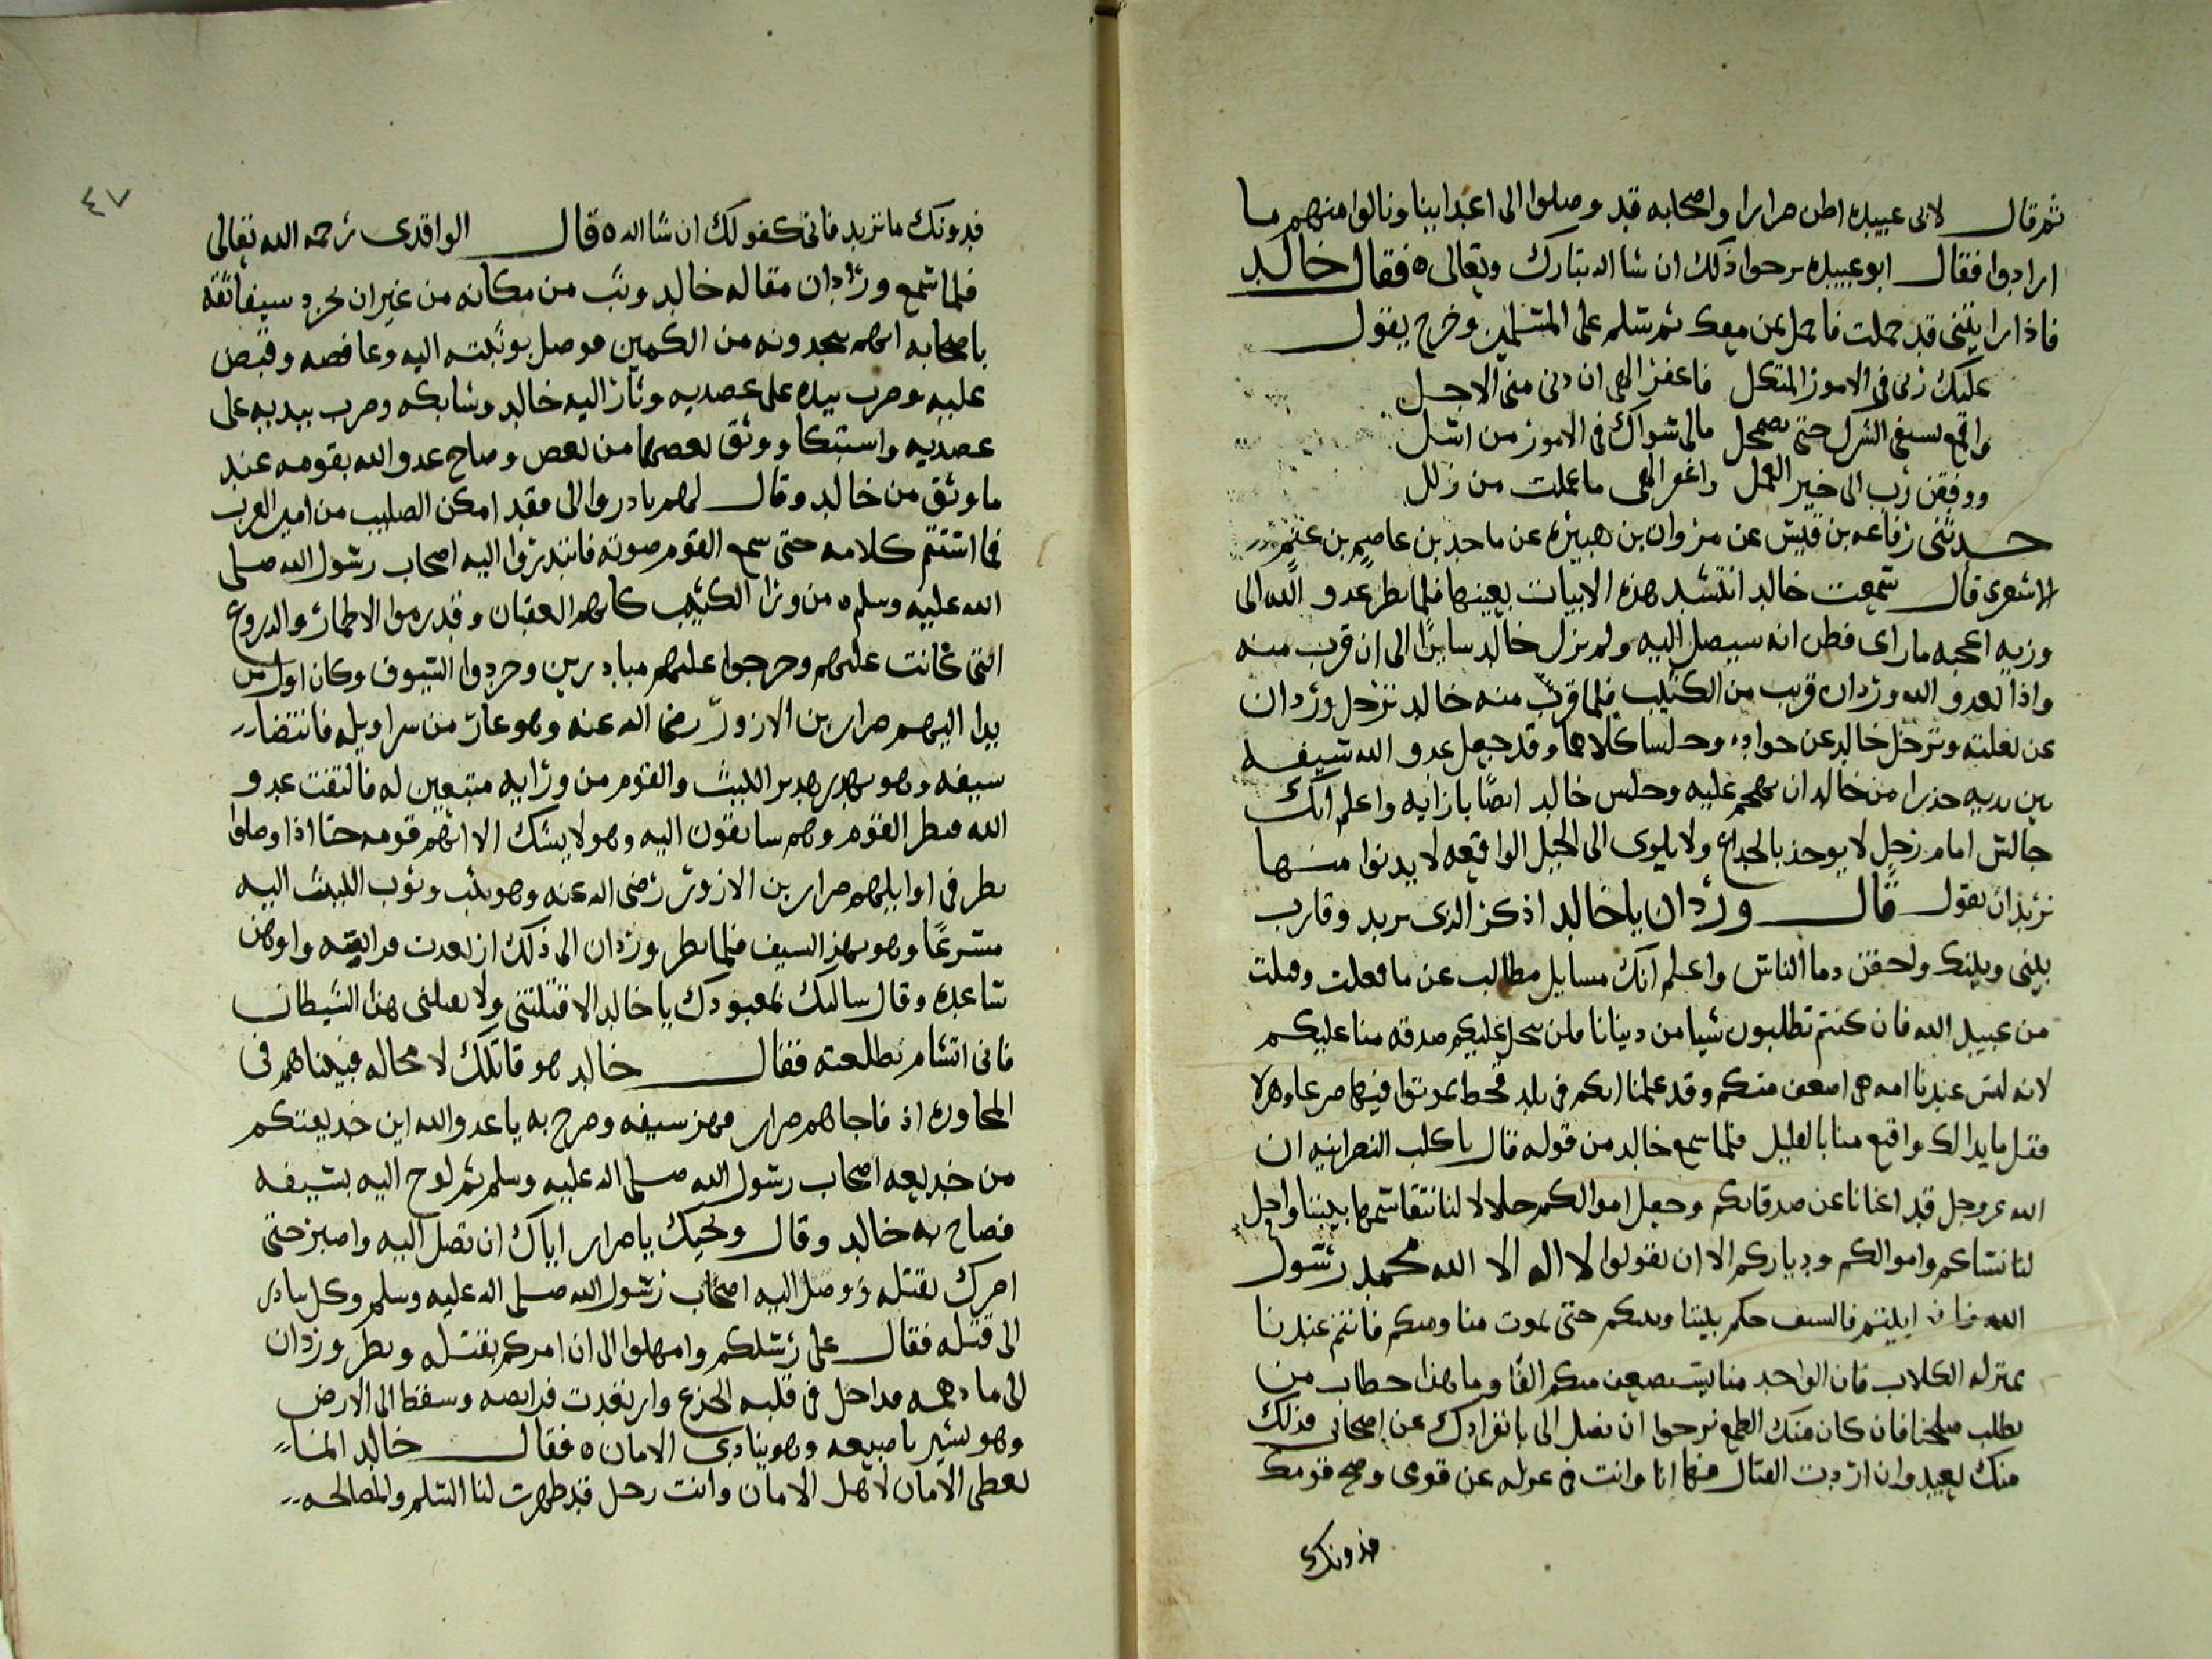 ثم قال لابى عبيده اطن ضرارا واصحابه قد وصلوا الى اعداينا ونالوا منهم ما
ارادوا فقال ابو عبيده نرحوا ذلك ان شا الله تبارك وتعالى ه فقال خالد
فاذا رايتنى قد حملت فاحمل بمن معك ثم سلم على المسلمين وخرج يقول
عليك ربى فى الامور المتكل فاغفر الهى ان دنى منى الاجل
واقمع بسيفى الشرك حتى يضمحل مالى سواك فى الامور من اسل
ووفقن رب الى خير العمل واغفر الهى ما عملت من زلل
حدثنى رفاعه بن قيس عن مروان بن هبيره عن ماجد بن عاصم بن عنم
الاشعرى قال سمعت خالد انشد هذه الابيات بعينها فلما نظر عدو الله الى
وزيه اعجبه ما راى فظن انه سيصل اليه ولم يزل خالد سايرا الى ان قرب منه
واذا بعدو الله وردان قريب من الكثيب فلما قرب منه خالد ترجل وردان
عن بغلته وترجل خالد عن جواده وجلسا كلاهما وقد جعل عدو الله سيفه
بين يديه حذرا من خالد ان يهجم عليه وجلس خالد ايضا بازايه واعلم انك
جالس امام رجل لا يوخذ بالخداع ولا يلوى الى الحيل الواقعه لا يدنوا منها
تريد ان تقول قال وردان يا خالد اذكر الذى تريد وقارب
بينى وبينك واحقن دما الناس واعلم انك مسايل مطالب عن ما فعلت وقتلت
من عبيد الله فان كنتم تطلبون شيا من دينانا فلن نبخل عليكم صدقه منا عليكم
لانه ليس عندنا امه هى اضعف منكم وقد علمنا انكم فى بلد قحط تموتوا فيها ضرعا وهزلا
فقل ما بدا لك واقنع منا بالقليل فلما سمع خالد من قوله قال يا كلب النصرانيه ان
الله عز وجل قد اغنانا عن صدقاتكم وجعل اموالكم حلالا لنا نتقاسمها بيننا واحل
لنا نساكم واموالكم ودياركم الا ان تقولوا لا اله الا الله محمد رسول
الله فان ابيتم فالسيف حكم بيننا وبينكم حتى يموت منا ومنكم فانتم عندنا
بمنزله الكلاب فان الواحد منا يستضعف منكم الفا وما هذا خطاب من
يطلب صلحنا فان كان منك الطمع ترجوا ان تصل الى بانفرادك عن اصحابى فذلك
منك بعيد وان اردت القتال فها انا وانت فى عزله عن قومى وصح قومك
فدونك
٤٧
فدونك ما تريد فانى كفو لك ان شا الله ه قال الواقدى رحمه الله تعالى
فلما سمع وردان مقاله خالد وثب من مكانه من غير ان يجرد سيفا ثقه
باصحابه انهم ينجدونه من الكمين فوصل بوثبته اليه وعافصه وقبض
عليه وضرب بيده على عضديه وثار اليه خالد وشابكه وضرب بيديه على
عضديه واستبكا ووثق بعضهما من بعض وصاح عدو الله بقومه عند
ما وثق من خالد وقال لهم بادروا الى فقد امكن الصليب من امير العرب
فما استتم كلامه حتى سمع القوم صوته فابتدروا اليه اصحاب رسول الله صلى
الله عليه وسلم ه من ورا الكثيب كانهم العقبان وقد رموا الاطمار والدروع
التى كانت عليهم وخرجوا عليهم مبادرين وجردوا السيوف وكان اول من
بدا اليهم ضرار بن الازور رضى الله عنه وهو عار من سراويله فانتضا
سيفه وهو يهدر هدير الليث والقوم من ورايه متبعين له فالتفت عدو
الله فنظر القوم وهم سابقون اليه وهو لا يشك الا انهم قومه حتا اذا وصلوا
نظر فى اوايلهم ضرار بن الازور رضى الله عنه وهو يثب وثوب الليث اليه
مسرعا وهو يهز السيف فلما نظر وردان الى ذلك ارتعدت فرايصه واوهن
ساعده وقال سالتك بمعبودك يا خالد الا قتلتنى ولا يقتلنى هذا الشيطان
فانى اتشام بطلعته فقال خالد هو قاتلك لا محاله فبيناهم فى
المحاوره اذ فاجاهم ضرار فهز سيفه وصرح به يا عدو الله اين خديعتكم
من خديعه اصحاب رسول الله صلى الله عليه وسلم ثم لوح اليه بسيفه
فصاح به خالد وقال ويحك يا ضرار اياك ان تصل اليه واصبر حتى
امرك بقتله ووصل اليه اصحاب رسول الله صلى الله عليه وسلم وكل بادر
الى قتله فقال على رسلكم وامهلوا الى ان امركم بقتله ونظر وردان
الى ما دهمه فداخل فى قلبه الجزع وارتعدت فرايصه وسقط الى الارض
وهو يشير باصبعه وهو ينادى الامان ه فقال خالد انما
نعطى الامان لاهل الامان وانت رجل قد ظهرت لنا السلم والمصالحه